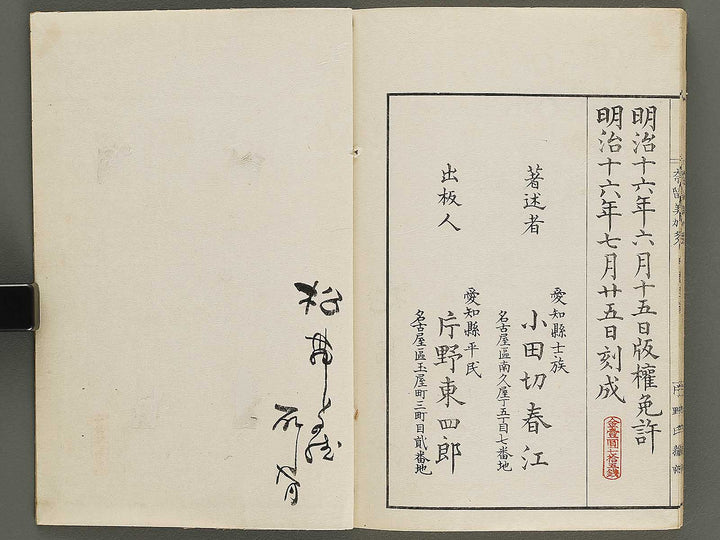 明治十六年六月十五日版權免許
明治十六年七月廿五日刻成
金壹圓七拾五錢
著述者
愛知縣士族
小田切春江
名古屋區南久屋丁五丁目七番地
出板人
愛知縣平民
片野東四郎
名古屋區玉屋町三町目貳番地
松